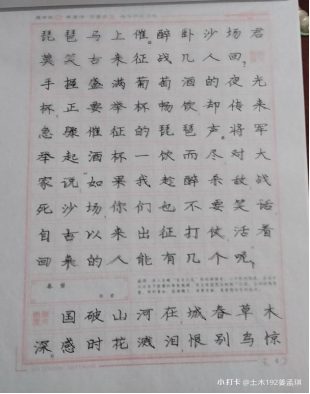 琵琶马上催醉卧沙场君
莫笑古来征战几人回,
手握盛满葡萄酒的夜光
杯,正要举杯畅饮却传来
急骤催征的琵琶声。将军
举起酒杯一饮而尽对大
家说如果我趁醉杀敌战
死沙场你们也不要笑话
自古以来出征打仗活着
回来的人能有几个呢?
春望
国破山河在城春草木
深感时花溅泪恨别鸟惊
小打卡@土木192姜孟琪